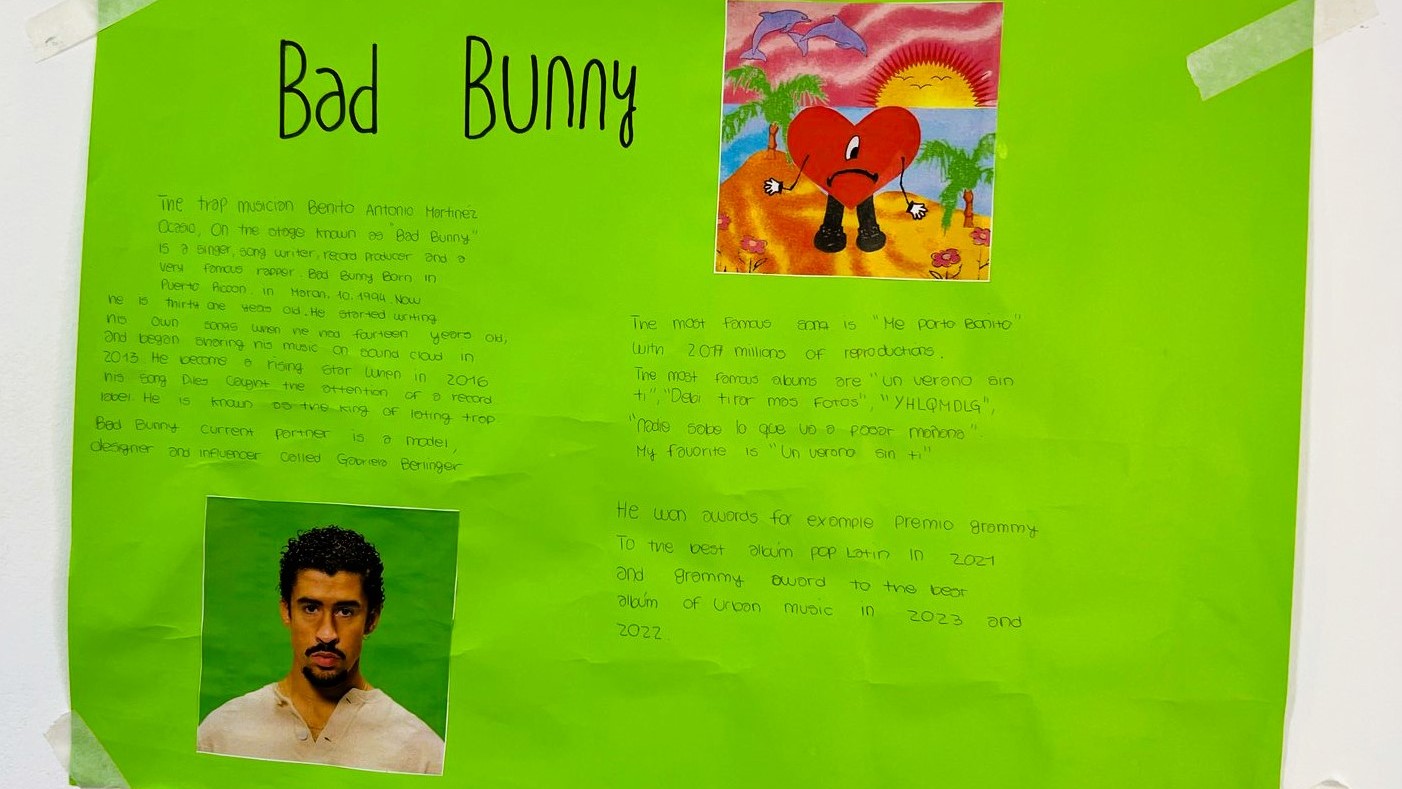 Bad Bunny
The trap musician Benito Antonio Martínez
Ocasio, On the stage known as "Bad Bunny"
is a singer, song writer, record producer and a
very famous rapper. Bad Bunny Born in
Puerto Riccon. in Marzh, 10, 1994. Now
he is thirty one years old. He started writing
his own songs when he had fourteen years old,
and began sharing his music on sound cloud in
2013. He become a rising star when in 2016
his song Diles caught the attention of a record
label. He is known as the king of lating trap.
Bad Bunny current partner is a model,
designer and influencer called Gabriela Berlinger
The most famous song is "Me porto Bonito"
with 2.017 millions of reproductions.
The most famous albums are "Un verano sin
ti", "Debi tirar mas Fotos", "YHLQMDLG",
"Nadie sabe lo que va a pasar mañana".
My favorite is "Un verano sin ti"
He won awards for example premio grammy
To the best album pop Latin in 2021
and grammy award to the best
album of Urban music in 2023 and
2022.